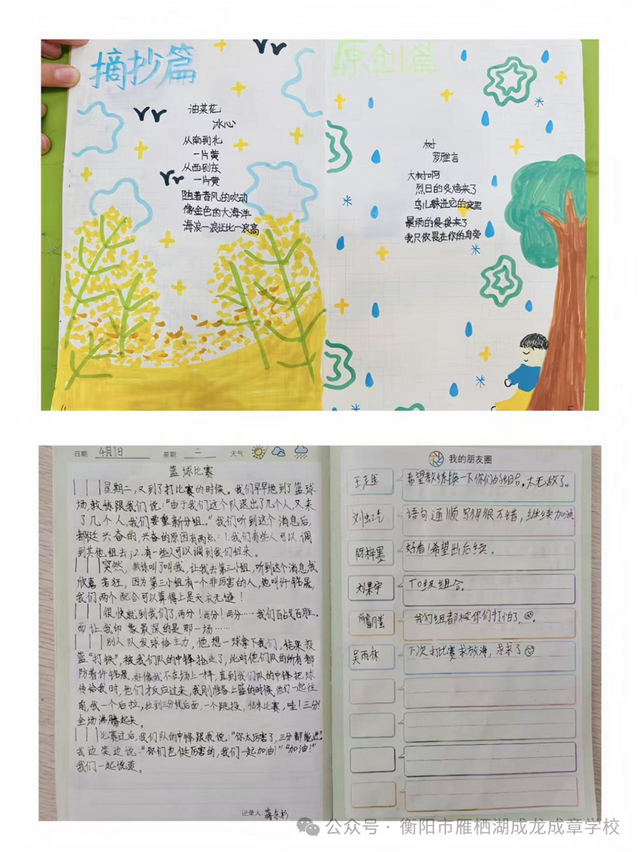 摘抄篇
油菜花
冰心
从南到北
一片黄
从西到东
一片黄
随着春风的吹动
像金色的大海洋
海浪一浪还比一浪高
原创篇
树
大树啊
烈日的炙烤来了
鸟儿躲进它的窝里
暴雨的侵袭来了
我只依偎在你的身旁
日期: 4月1日 星期: 二 天气:
篮球比赛
星期二,又到了打比赛的时候。我们早早地到了篮球
场,教练跟我们说:“由于我们这个队退出了几个人,又来
了几个人,我们要重新分组。”我们听到这个消息后,
都挺兴奋的,兴奋的原因有两点:1.我们有些人可以调
到其他组去;2.有一些人可以调到我们组来。
突然,教练叫了叫我,让我去第三小组,听到这个消息,我
欣喜若狂,因为第三小组有一个非厉害的人,他叫
我们两个配合可以算得上是天衣无缝!
很快就到我们了,两分!两分!两分……我们百战百胜。
而让我印象最深的是那一场……
别人队发球给主力,他想一球拿下我们,结果投
篮“打铁”,被我们队的中锋抢走了,此时他们队的所有都
防着
传给我时,他们才反应过来,我刚准备上篮的时候,他们一起往
前,我一个后拉,拉到三分线后面,一个跳投,结果比赛,哇!三分!
全场沸腾起来。
比赛过后,我们队的中锋跟我说:“你太厉害了,三分都能进!”
我边笑边说:“你们也挺厉害的,我们一起加油!”“加油!”
我们一起说道。
记录人:
我的朋友圈
希望教练换一下你们的组合。太无敌了。
语句通顺,写得很不错,继续加油
好看!希望出后续。
T0级组合。
我们组都被你们打怕了。
吴雨林
下次打比赛求放海,求求了
公众号 · 衡阳市雁栖湖成龙成章学校